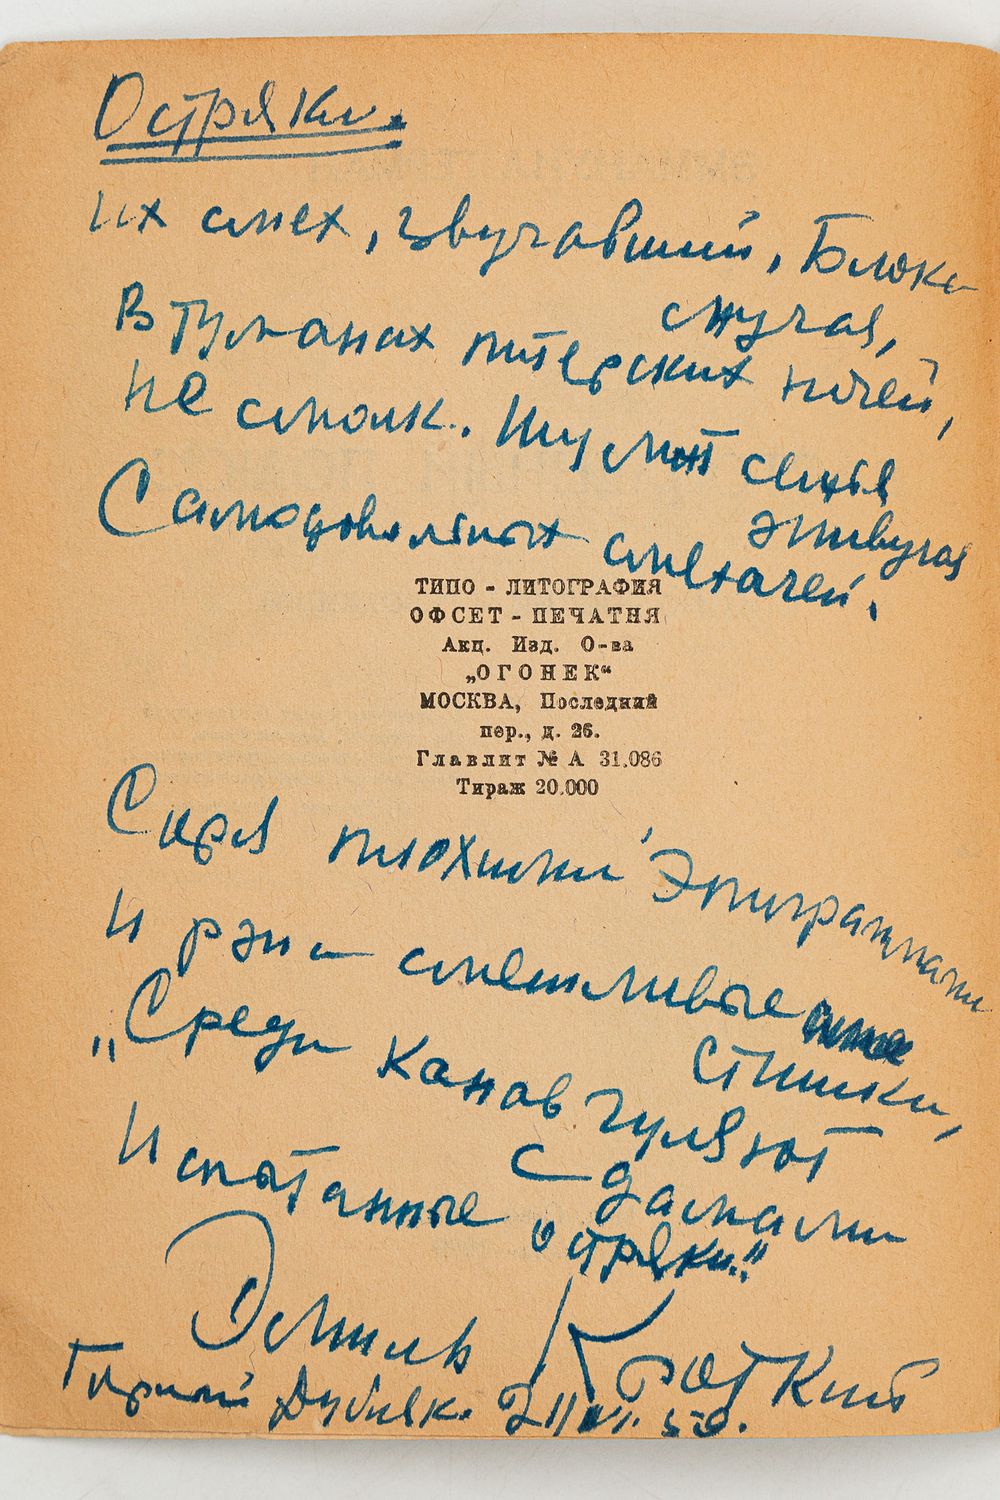 Остряки.
Их смех, звучавший, Блока
смущая,
В туманах питерских ночей,
Не смолк. Шумит семья
эпивугая
Самодовольных смехачей.
ТИПО - ЛИТОГРАФИЯ
ОФСЕТ - ПЕЧАТНЯ
Акц. Изд. О-ва
„ОГОНЕК“
МОСКВА, Последний
пер., д. 26.
Главлит № А 31.086
Тираж 20.000
Соря плохими эпиграммами
И рэпя смешливые
стишки,
„Среди канав гуляют
с дамами
Испытанные остряки."
Эмиль Кроткий
Горький Дубняк. 2